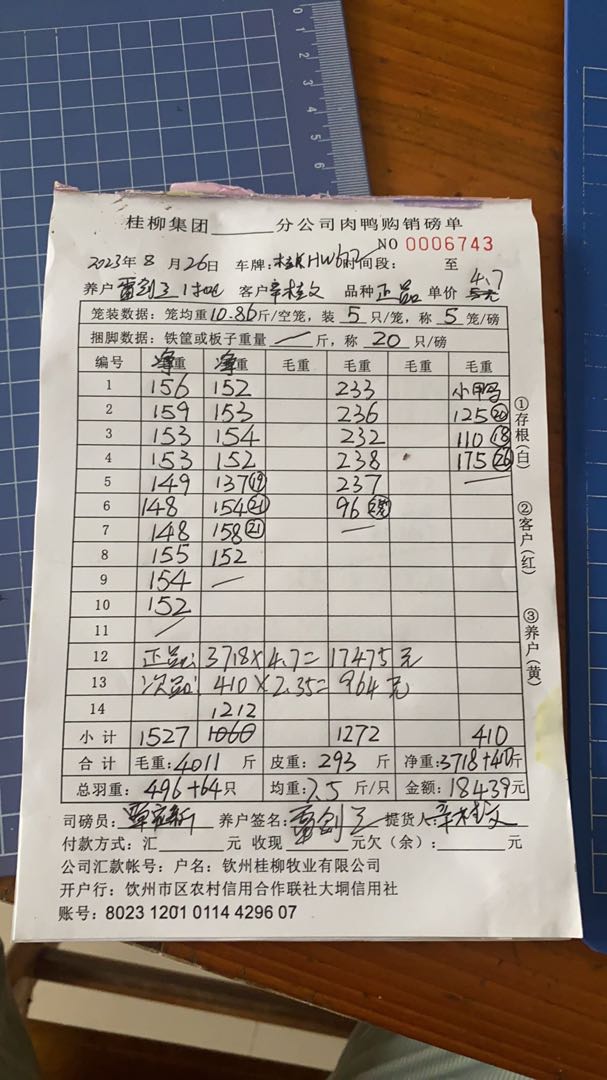 0 1 2 3 4 5 6
桂柳集团______分公司肉鸭购销磅单
NO 0006743
2023年8月26日 车牌: 时间段: 至
养户 客户 辛桂文 品种 正品 单价 4.7
笼装数据: 笼均重10.86斤/空笼, 装 5 只/笼, 称 5 笼/磅
捆脚数据: 铁筐或板子重量 / 斤, 称 20 只/磅
编号 净重 净重 毛重 毛重 毛重 毛重
1 156 152 233 小鸭
2 159 153 236 125⑳
3 153 154 232 110⑱
4 153 152 238 175㉖
5 149 137⑲ 237 —
6 148 154㉑ 96 —
7 148 158㉑ —
8 155 152
9 154 —
10 152
11 /
12 正品: 3718×4.7=17475元
13 次品: 410×2.35=964元
14 1212
小计 1527 1060 1272 410
合计 毛重:4011斤 皮重:293斤 净重:3718+410斤
总羽重: 496+64只 均重:7.5斤/只 金额:18439元
司磅员: 养户签名: 提货人: 辛桂文
付款方式: 汇______元 收现______元欠(余):______元
公司汇款帐号: 户名: 钦州桂柳牧业有限公司
开户行: 钦州市区农村信用合作联社大垌信用社
账号: 8023 1201 0114 4296 07
①存根(白)
②客户(红)
③养户(黄)